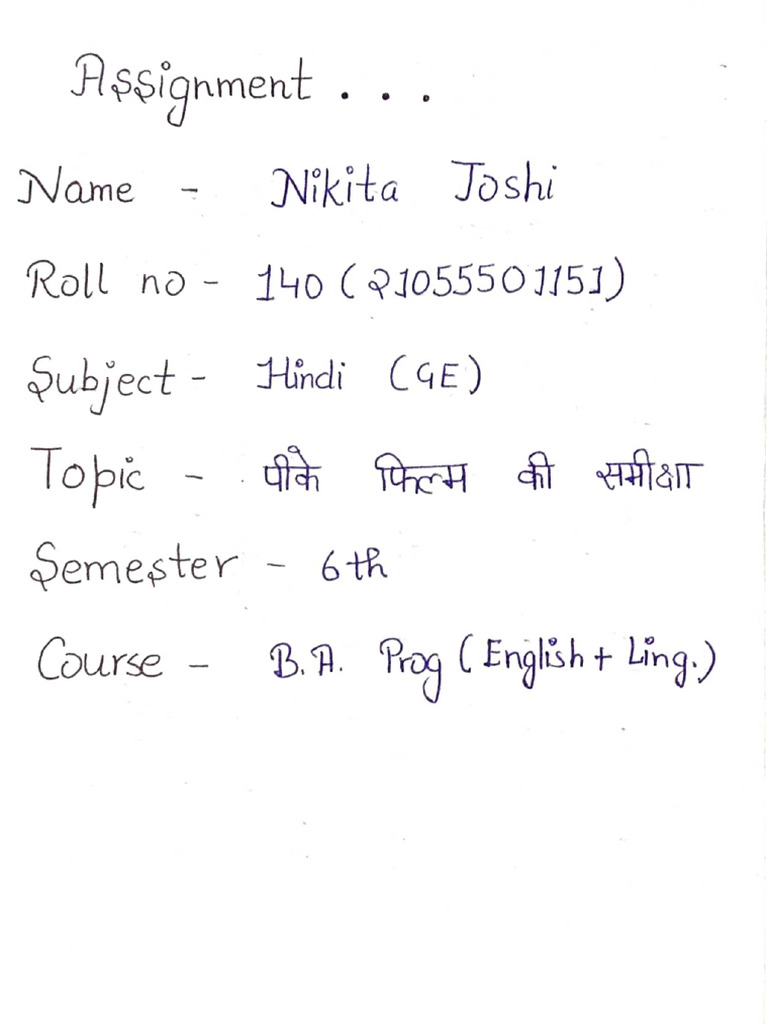 Assignment . . .
Name - Nikita Joshi
Roll no - 140 (21055501151)
Subject - Hindi (GE)
Topic - पीके फिल्म की समीक्षा
Semester - 6th
Course - B.A. Prog (English + Ling.)